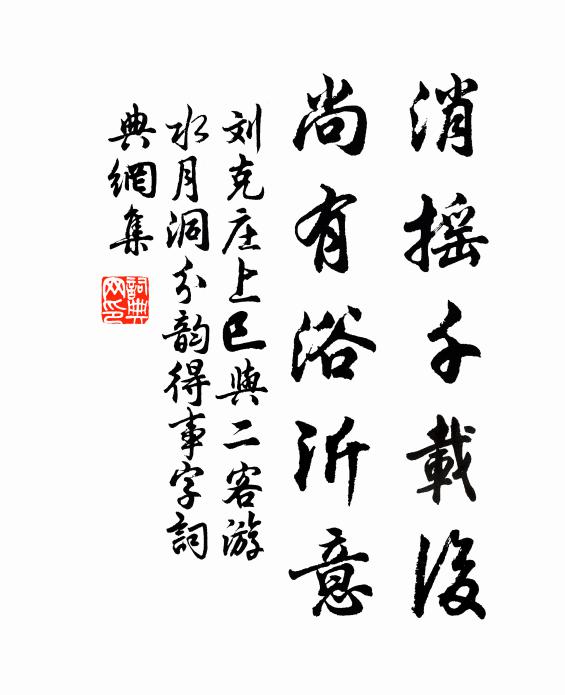 消摇千載後
尚有浴沂意
刘克庄上巳與二客游
水月洞分韵得事字詞
典網集
詞典网印